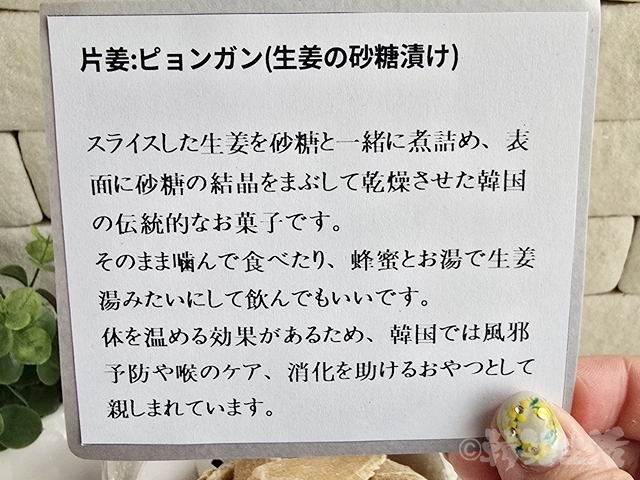 片姜:ピョンガン(生姜の砂糖漬け)
スライスした生姜を砂糖と一緒に煮詰め、表
面に砂糖の結晶をまぶして乾燥させた韓国
の伝統的なお菓子です。
そのまま噛んで食べたり、蜂蜜とお湯で生姜
湯みたいにして飲んでもいいです。
体を温める効果があるため、韓国では風邪
予防や喉のケア、消化を助けるおやつとして
親しまれています。